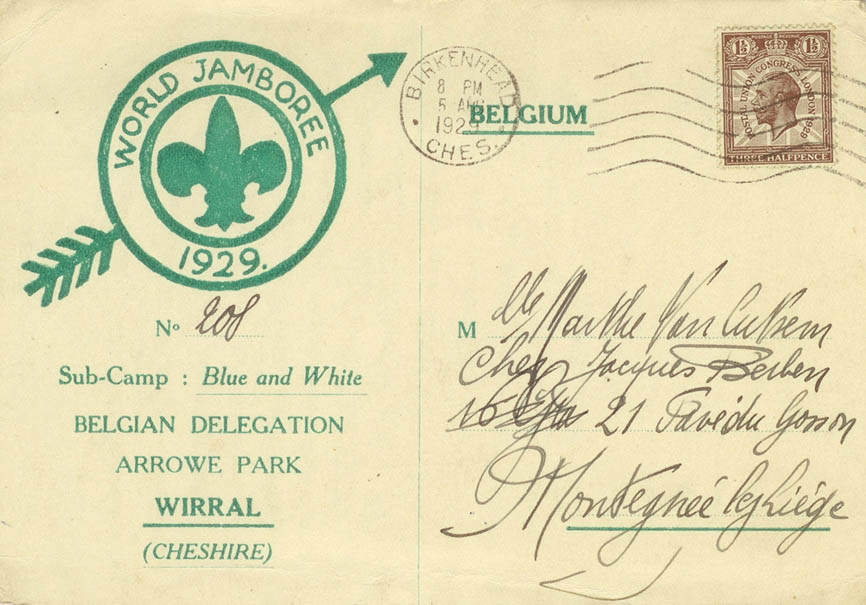 WORLD JAMBOREE
1929.
Nº 208
Sub-Camp : Blue and White
BELGIAN DELEGATION
ARROWE PARK
WIRRAL
(CHESHIRE)
BIRKENHEAD
8 PM
5 AUG
1929
CHES.
BELGIUM
1½ POSTAGE REVENUE 1½
POSTAL UNION CONGRESS LONDON 1929
THREE HALFPENCE
Mlle Marthe
Chez Jacques
16 21 Pavé du Gosson
Montegnée lez Liége